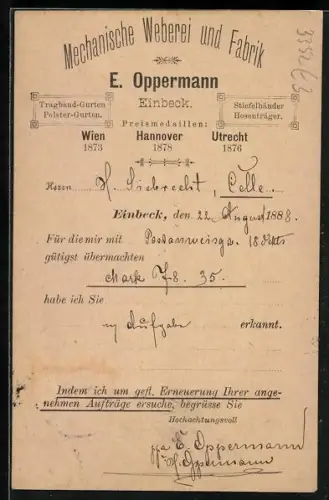 Mechanische Weberei und Fabrik
E. Oppermann
Einbeck.
Tragband-Gurten
Polster-Gurten.
Stiefelbänder
Hosenträger.
Preismedaillen:
Wien Hannover Utrecht
1873 1878 1876
Herrn H. Siebrecht, Celle.
Einbeck, den 22 August 1888.
Für die mir mit Postanweisg. 18
gütigst übermachten
Mark 78. 35.
habe ich Sie
Aufgabe erkannt.
Indem ich um gefl. Erneuerung Ihrer ange-
nehmen Aufträge ersuche, begrüsse Sie
Hochachtungsvoll
ppa E. Oppermann
Oppermann